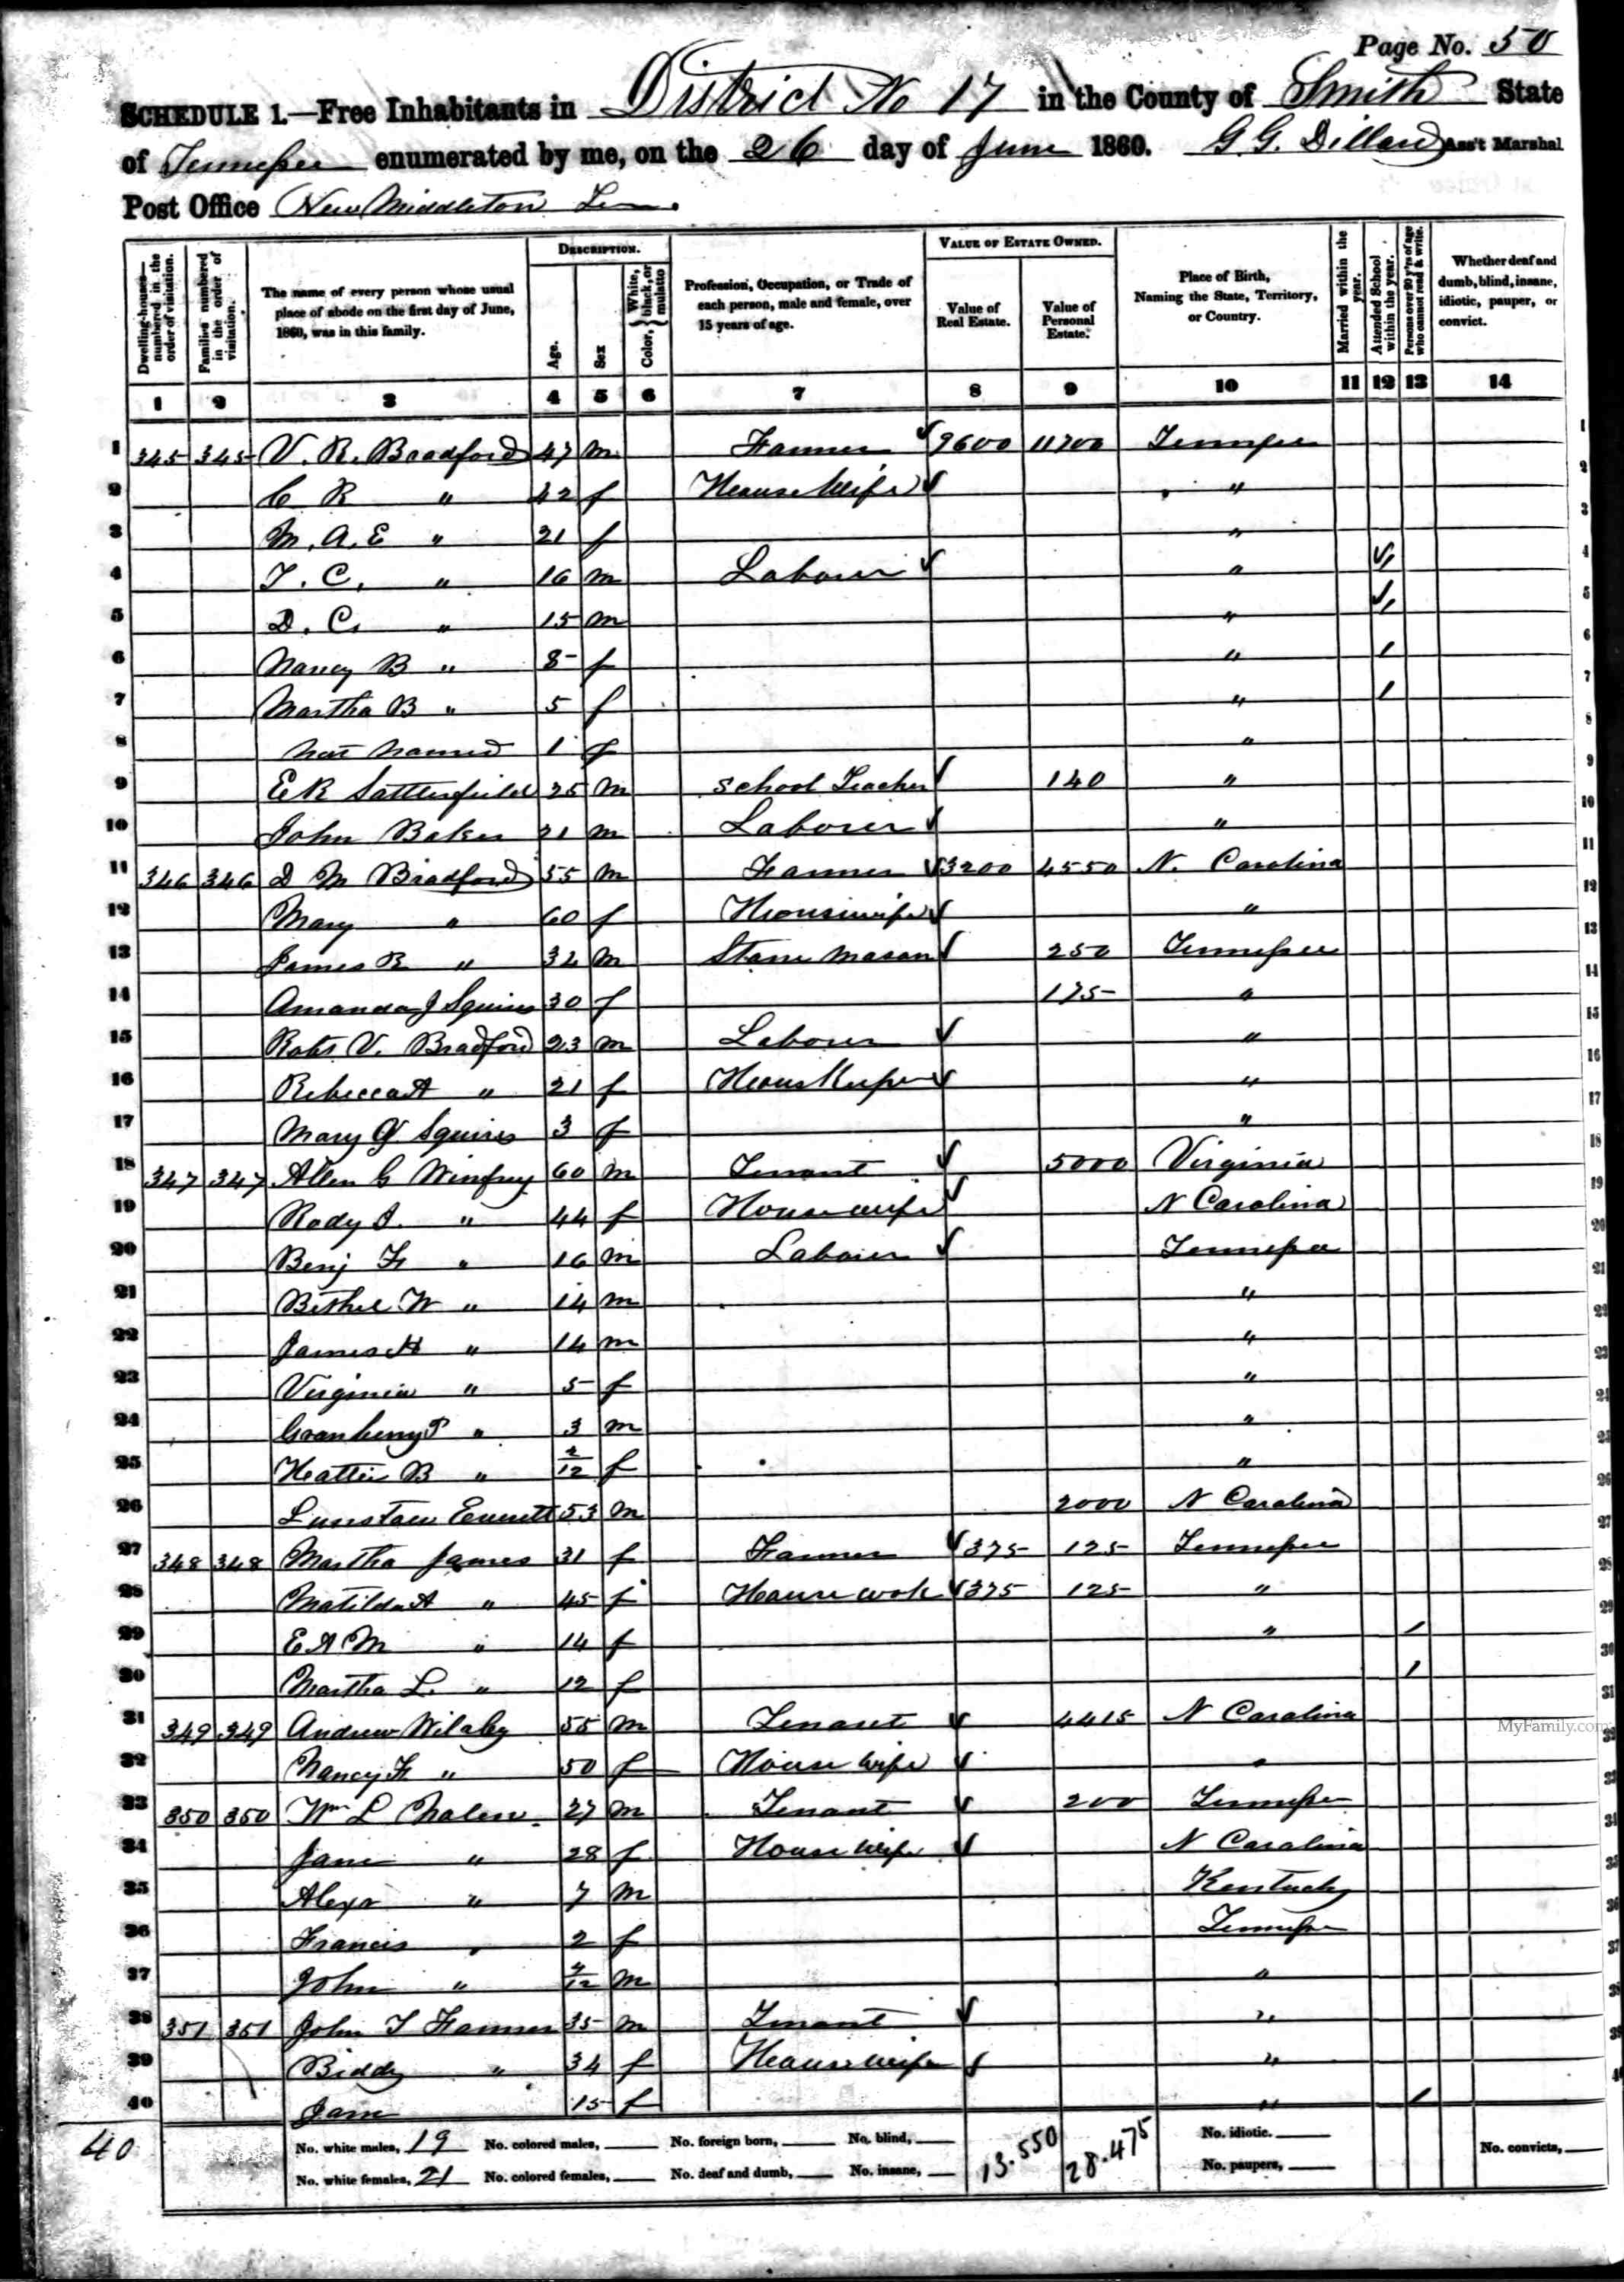 Page No. 50
SCHEDULE 1.—Free Inhabitants in District No 17 in the County of Smith State
of Tennessee enumerated by me, on the 26 day of June 1860. G. G. Dillard Ass't Marshal
Post Office New Middleton Ten.
Dwelling-houses— numbered in the order of visitation.
Families numbered in the order of visitation.
The name of every person whose usual place of abode on the first day of June, 1860, was in this family.
DESCRIPTION.
Age.
Sex
Color, White, black, or mulatto
Profession, Occupation, or Trade of each person, male and female, over 15 years of age.
VALUE OF ESTATE OWNED.
Value of Real Estate.
Value of Personal Estate.
Place of Birth, Naming the State, Territory, or Country.
Married within the year.
Attended School within the year.
Persons over 20 y'rs of age who cannot read & write.
Whether deaf and dumb, blind, insane, idiotic, pauper, or convict.
1 2 3 4 5 6 7 8 9 10 11 12 13 14
1 345 345 V. R. Bradford 47 m Farmer 9600 11700 Tennessee 1
2 C R " 42 f House Wife " 2
3 M. A. E " 21 f " 3
4 T. C. " 16 m Labour " / 4
5 D. C. " 15 m " / 5
6 Nancy B " 8 f " / 6
7 Martha B " 5 f " / 7
8 not named 1 f " 8
9 E R Satterfield 25 m School Teacher 140 " 9
10 John Baker 21 m Laborer " 10
11 346 346 D M Bradford 55 m Farmer 3200 4550 N. Carolina 11
12 Mary " 60 f Housewife " 12
13 James R " 32 m Stone Mason 250 Tennessee 13
14 Amanda J Squires 30 f 175 " 14
15 Robt V. Bradford 23 m Labour " 15
16 Rebecca A " 21 f Hous Keeper " 16
17 Mary Squires 3 f " 17
18 347 347 Allen G Winfrey 60 m Tenant 5000 Virginia 18
19 Rody J. " 44 f House wife N Carolina 19
20 Benj F " 16 m Laborer Tennessee 20
21 Bethel W " 14 m " 21
22 James H " 14 m " 22
23 Virginia " 5 f " 23
24 Granberry P " 3 m " 24
25 Hattie B " /12 f " 25
26 53 m 2000 N Carolina 26
27 348 348 Martha James 31 f Farmer 375 125 Tennessee 27
28 Matilda A " 45 f House work 375 125 " 28
29 E A M " 14 f " / 29
30 Martha L. " 12 f / 30
31 349 349 Andrew 55 m Tenant 4415 N Carolina 31
32 Nancy F " 50 f House wife " 32
33 350 350 Wm L 27 m Tenant 200 Tennessee 33
34 Jane " 28 f House Wife N Carolina 34
35 Alexr " 7 m Kentucky 35
36 Francis " 2 f Tennessee 36
37 John " /12 m " 37
38 351 351 John T Farmer 35 m Tenant " 38
39 Biddy " 34 f House wife " 39
40 Jane 15 f " / 40
40
No. white males, 19 No. colored males, No. foreign born, No. blind, 13.550 28.475 No. idiotic. No. convicts,
No. white females, 21 No. colored females, No. deaf and dumb, No. insane, No. paupers,
MyFamily.com